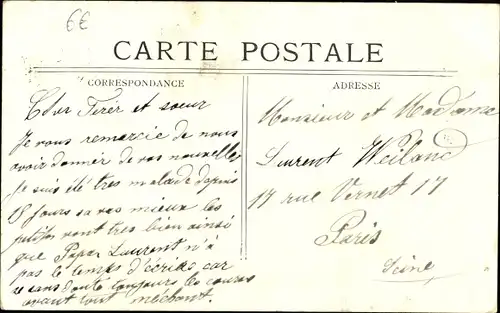 6€
CARTE POSTALE
CORRESPONDANCE
Cher Firér et soeur
Je vous remarcie de nous
avoir donner de vos nouvelles
Je suis été tres malade depuis
15 jours sa vas mieux les
vont tres bien ainsi
que Papa Laurent n'a
pas le temps d'écrire car
sans doute toujours les
avant tout méchant.
ADRESSE
Monsieur et Madame
Laurent Weiland
17 rue Vernet 17
Paris
Seine